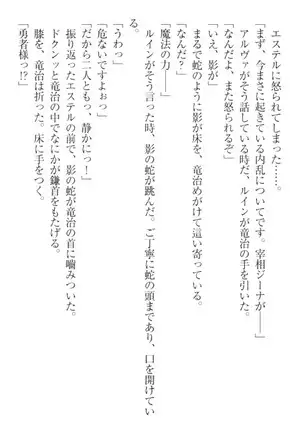 エステルに怒られてしまった……。
「まず、今まさに起きている内乱についてです。宰相ジーナが――」
アルヴァがそう話している時だ、ルインが竜治の手を引いた。
「なんだよ、また怒られるぞ」
「いえ、影が」
まるで蛇のように影が床を、竜治めがけて這い寄っている。
「なんだ？」
「魔法の力――」
ルインがそう言った時、影の蛇が跳んだ。ご丁寧に蛇の頭まであり、口を開けてい
る。
「うわっ」
「危ないですよぉっ」
「だから二人とも、静かにっ！」
振り返ったエステルの前で、影の蛇が竜治の首に嚙みついた。
ドクンッと竜治の中でなにかが鎌首をもたげる。
膝を、竜治は折った。床に手をつく。
「勇者様っ!?」